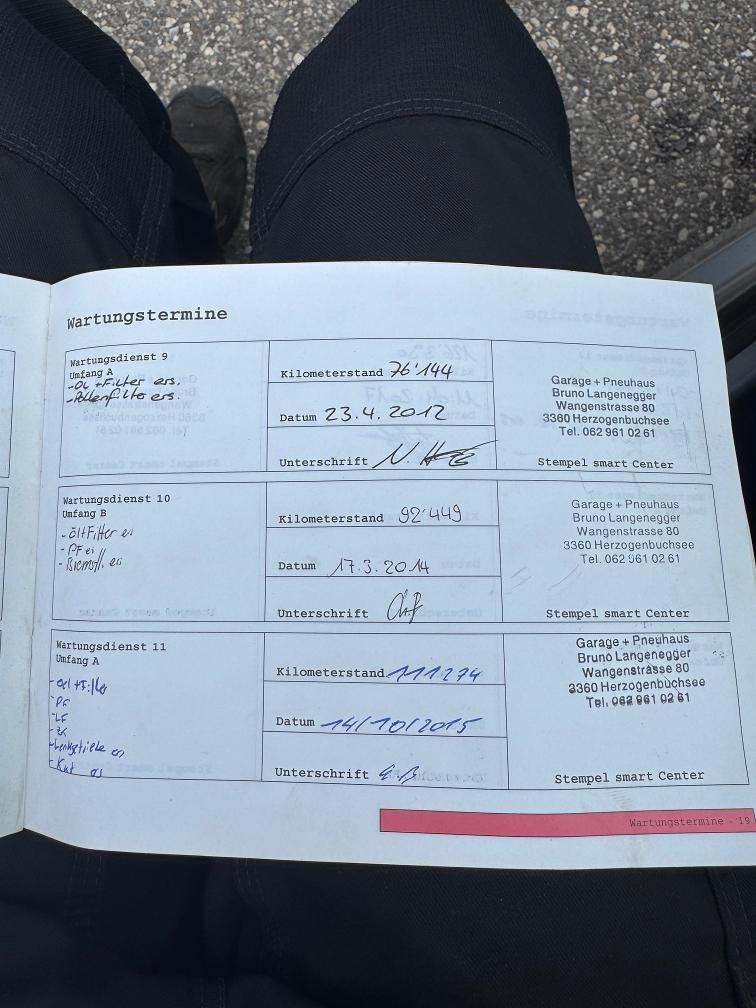 Wartungstermine
Wartungsdienst 9
Umfang A
-Öl + Filter ers.
-Pollenfilter ers.
Kilometerstand 76'144
Datum 23.4.2012
Unterschrift
Garage + Pneuhaus
Bruno Langenegger
Wangenstrasse 80
3360 Herzogenbuchsee
Tel. 062 961 02 61
Stempel smart Center
Wartungsdienst 10
Umfang B
- Öl+Filter
- PF
Kilometerstand 92'449
Datum 17.3.2014
Unterschrift
Garage + Pneuhaus
Bruno Langenegger
Wangenstrasse 80
3360 Herzogenbuchsee
Tel. 062 961 02 61
Stempel smart Center
Wartungsdienst 11
Umfang A
- Oel + Filter
- PF
- LF
Kilometerstand 111.274
Datum 14/10/2015
Unterschrift
Garage + Pneuhaus
Bruno Langenegger
Wangenstrasse 80
3360 Herzogenbuchsee
Tel. 062 961 02 61
Stempel smart Center
Wartungstermine - 19